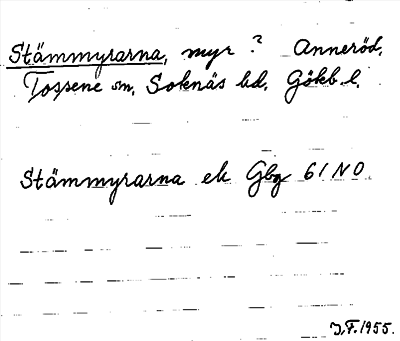 Stämmyrarna, myr? Anneröd,
Tossene sn, Soknäs hd. Gökb l.
Stämmyrarna ek Gbg 61 NO
J.F. 1955.